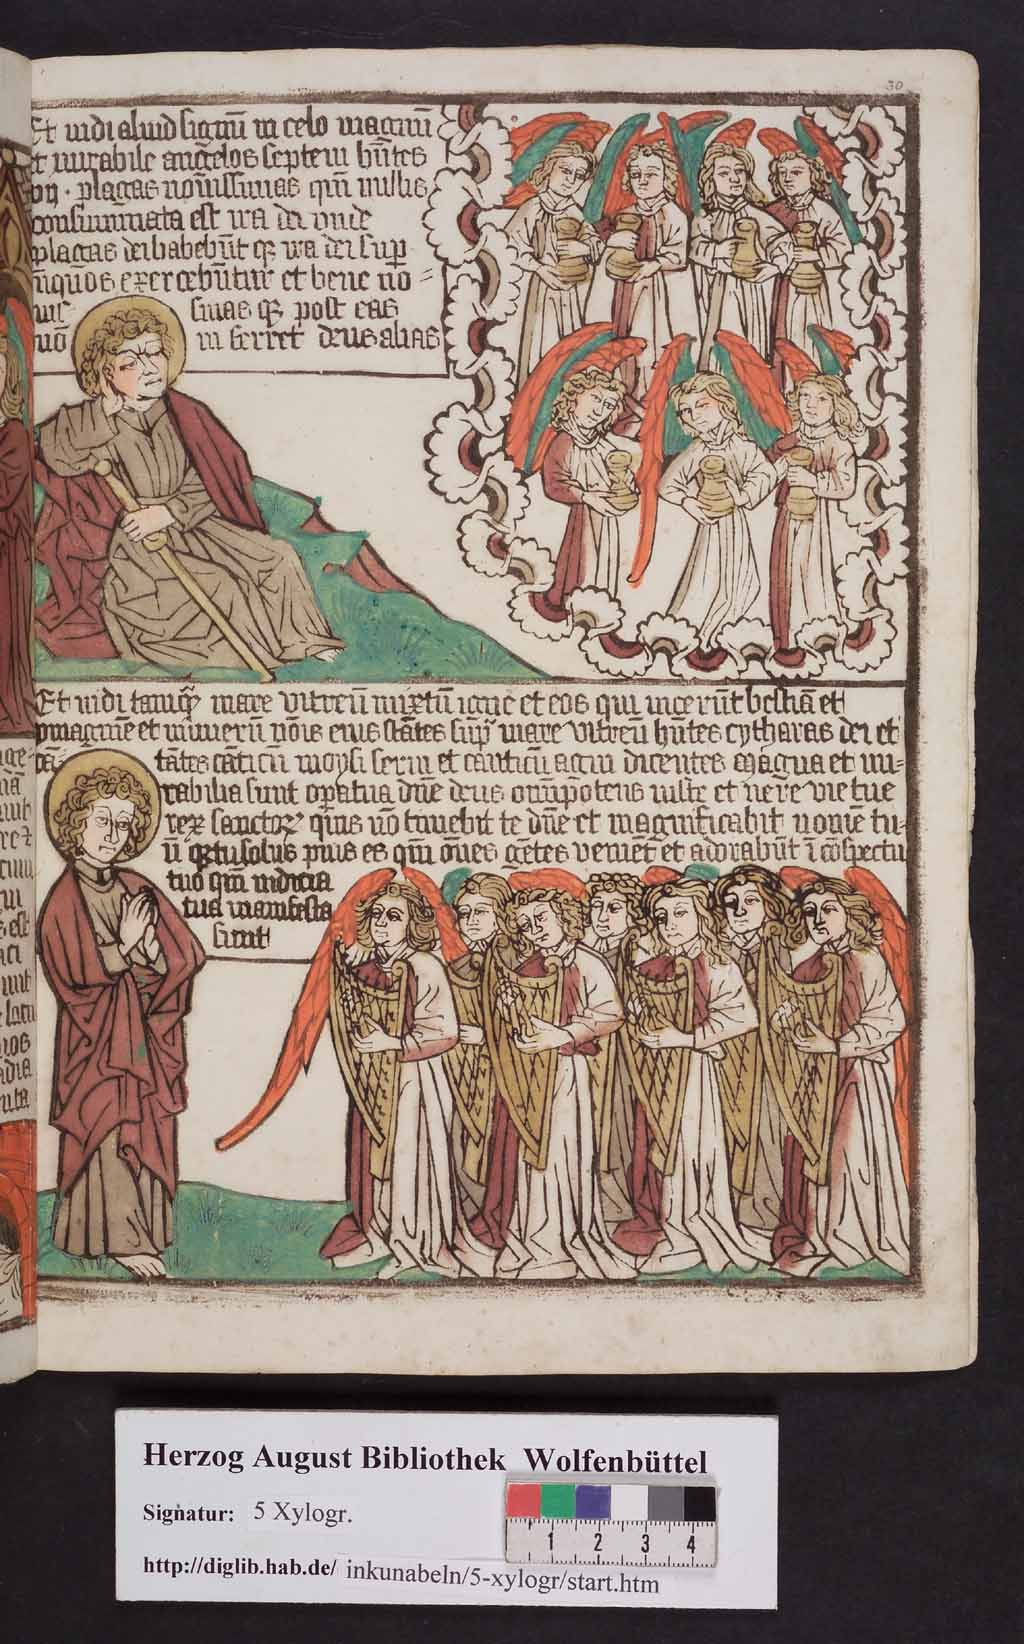 30
Et vidi aliud signū in celo magnū
et mirabile angelos septem hn̄tes
plagas novissimas qm̄ in illis
consummata est ira dei unde
plagas dei habebūt qz ira dei sup
exercebūtur et bene no=
vis- simas qz post eas
nō in ferret deus alias
Et vidi tamqz mare vitreū mixtū igne et eos qui vicerūt bestiā et
ymaginē et numerū nōis eius stātes supra mare vitreū hn̄tes cytharas dei et
cā- tātes cāticū moysi servi et canticū agni dicentes Magna et mi=
rabilia sunt opera tua dn̄e deus om̄ipotens iuste et vere vie tue
rex sanctorz quis nō timebit te dn̄e et magnificabit nomē tu-
ū qz tu solus pius es qm̄ om̄es gētes veniēt et adorabūt ī cōspectu
tuo qm̄ iudicia
tua manifesta
sunt
Herzog August Bibliothek Wolfenbüttel
Signatur: 5 Xylogr.
1 2 3 4
http://diglib.hab.de/ inkunabeln/5-xylogr/start.htm